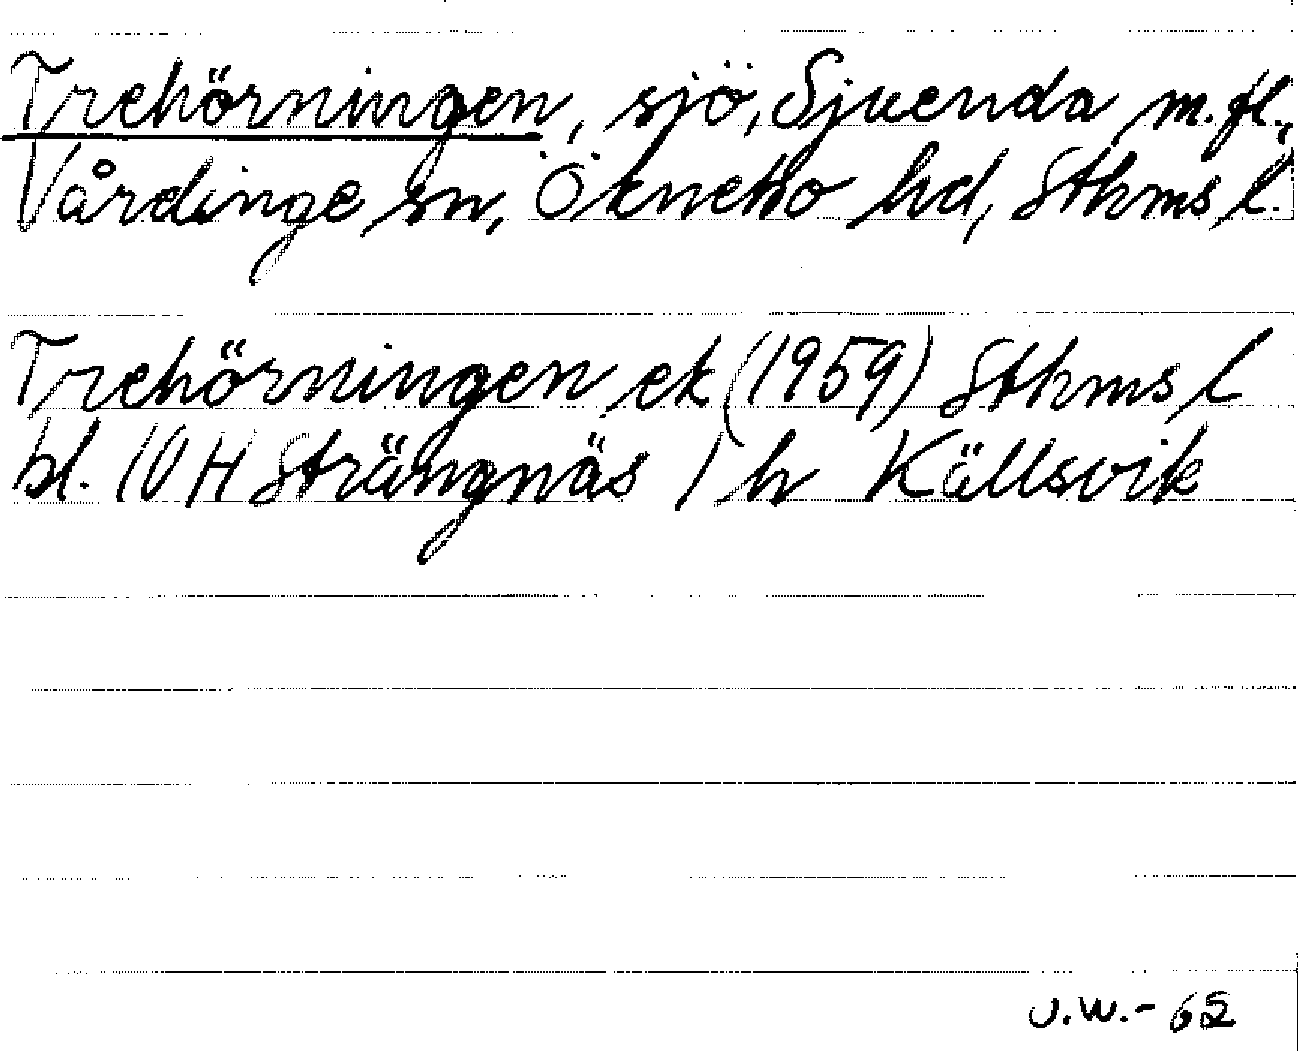 Trehörningen, sjö, Sjuenda m.fl.,
Vårdinge sn, Öknebo hd, Sthms l.
Trehörningen ek (1959) Sthms l
bl. 10 H Strängnäs 1 h Källsvik
U.W.-62